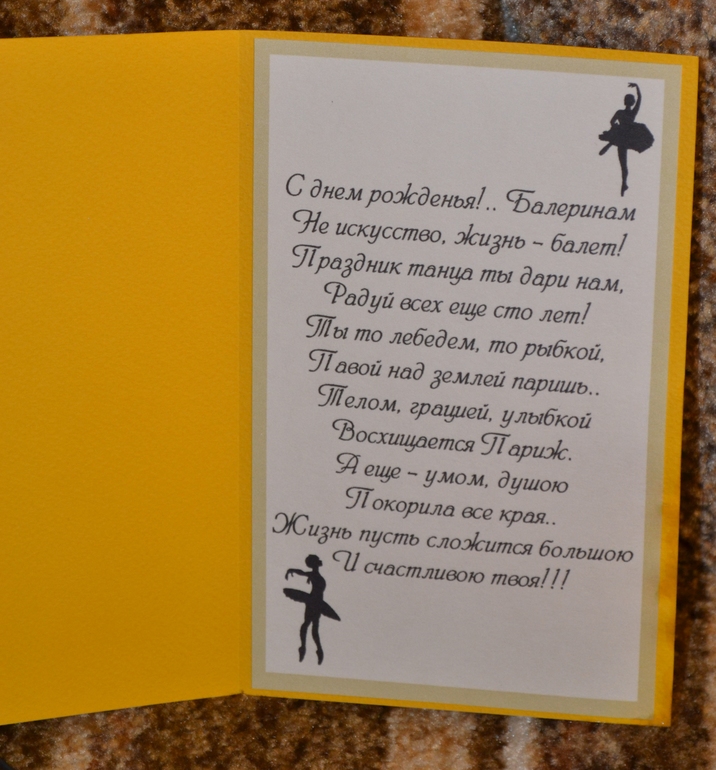 С днем рожденья!.. Балеринам
Не искусство, жизнь – балет!
Праздник танца ты дари нам,
Радуй всех еще сто лет!
Ты то лебедем, то рыбкой,
Павой над землей паришь..
Телом, грацией, улыбкой
Восхищается Париж.
А еще – умом, душою
Покорила все края..
Жизнь пусть сложится большою
И счастливою твоя!!!